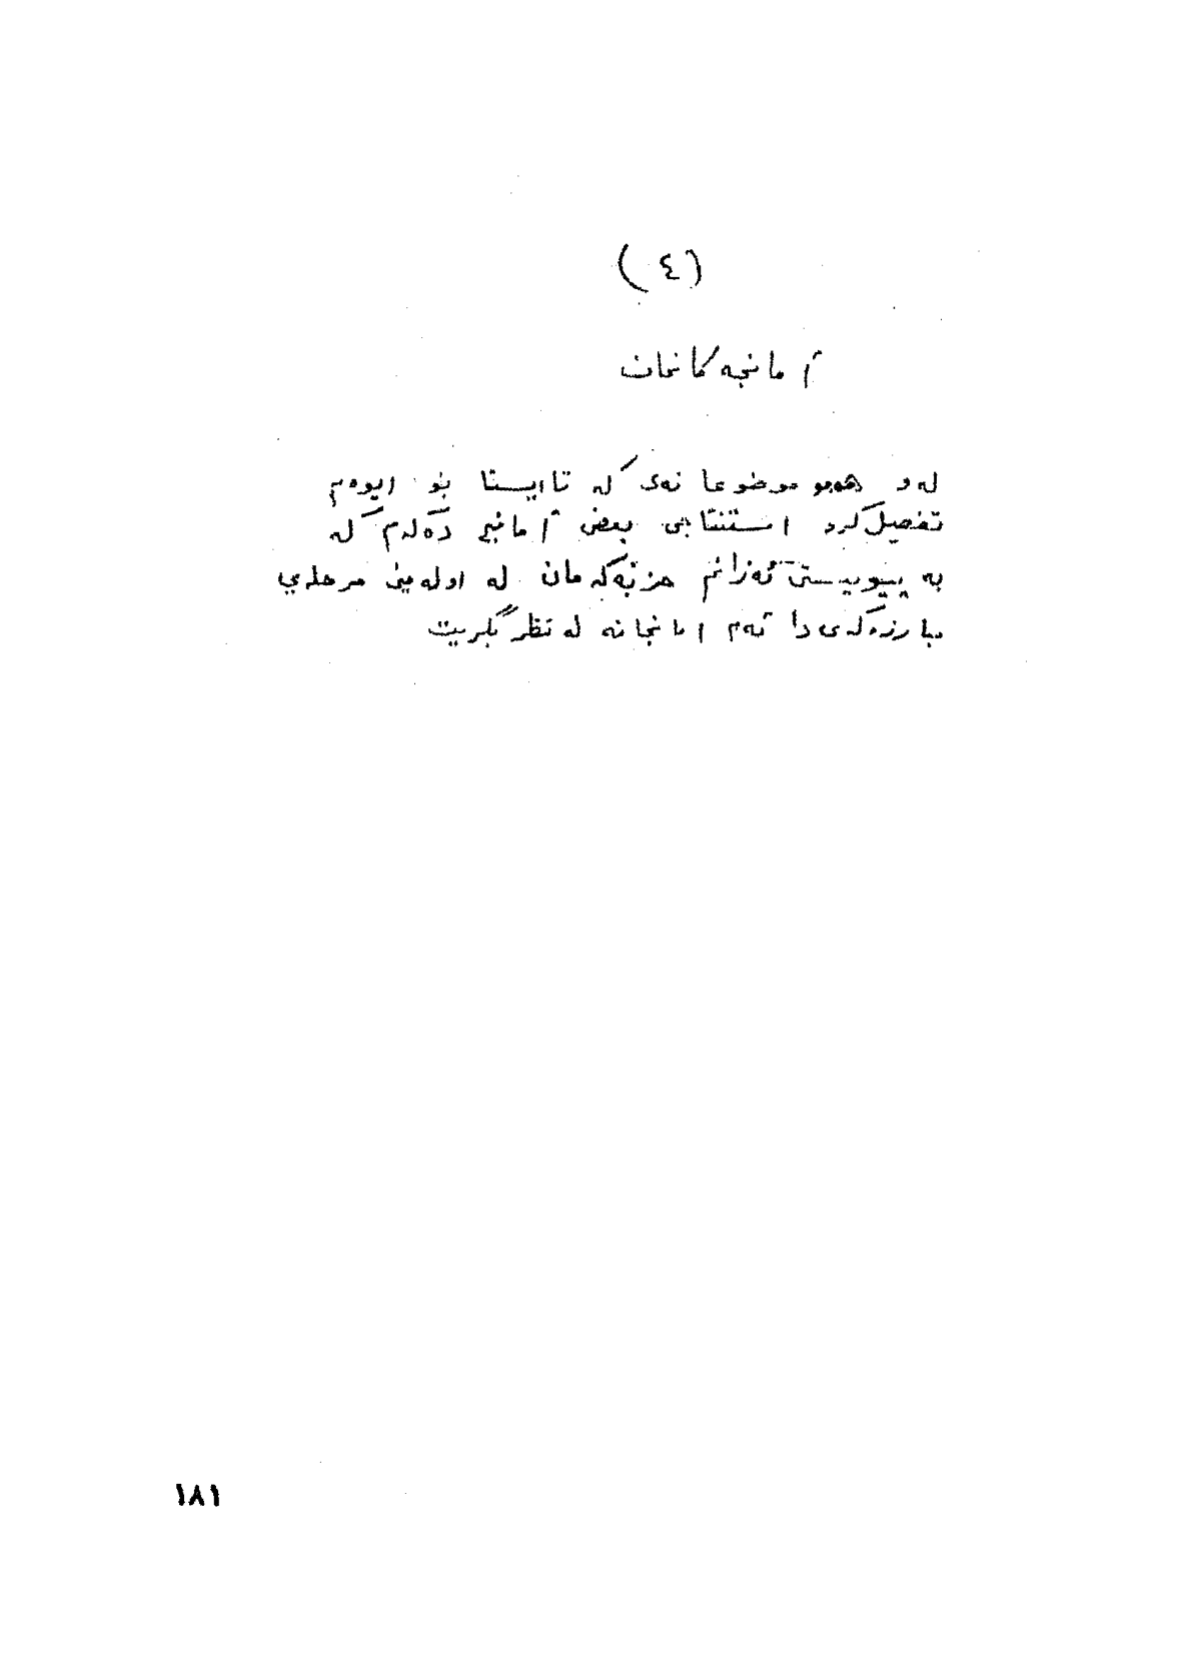 (٤)
آمانجه كانمان
لەو هەمو موضوعا نەی كە تا ايستا بۆ ايوەم
تفصيل كرد استنتاجی بعض آمانجی دەكەم كە
بە پيويستی ئەزانم حزبەكەمان لە اولەمين مرحلەي
مبارزەكەی دا ئەم امانجانە لە نظر بگريت
١٨١